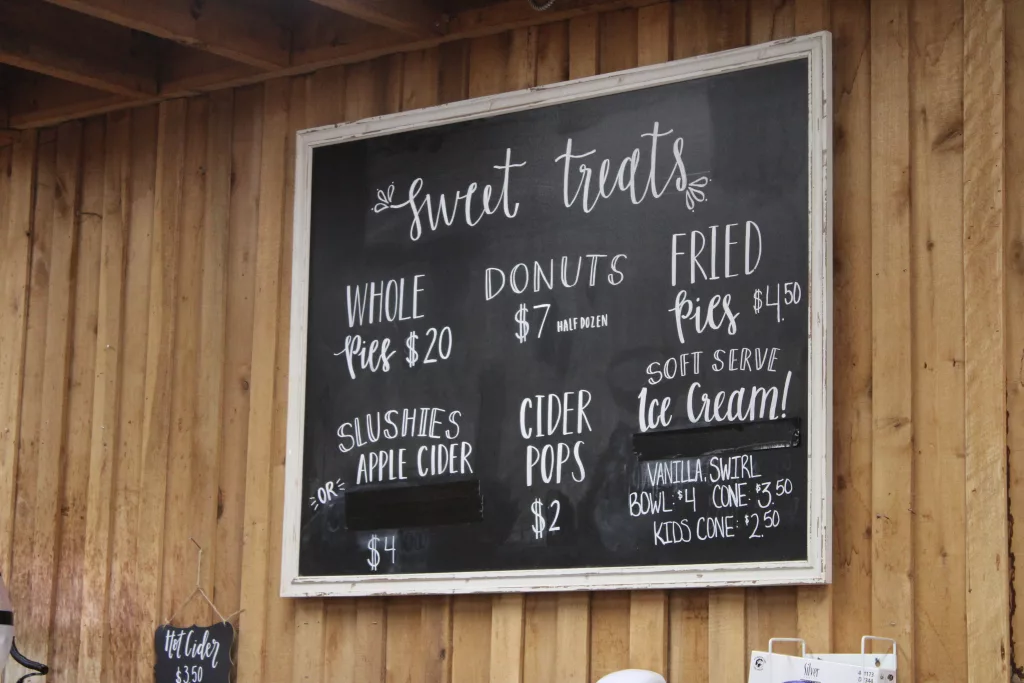 Sweet treats
WHOLE
Pies $20
DONUTS
$7 HALF DOZEN
FRIED
Pies $4.50
SLUSHIES
APPLE CIDER
"OR"
$4
CIDER
POPS
$2
SOFT SERVE
Ice Cream!
VANILLA, SWIRL
BOWL: $4 CONE: $3.50
KIDS CONE: $2.50
Hot Cider
$3.50
Silver